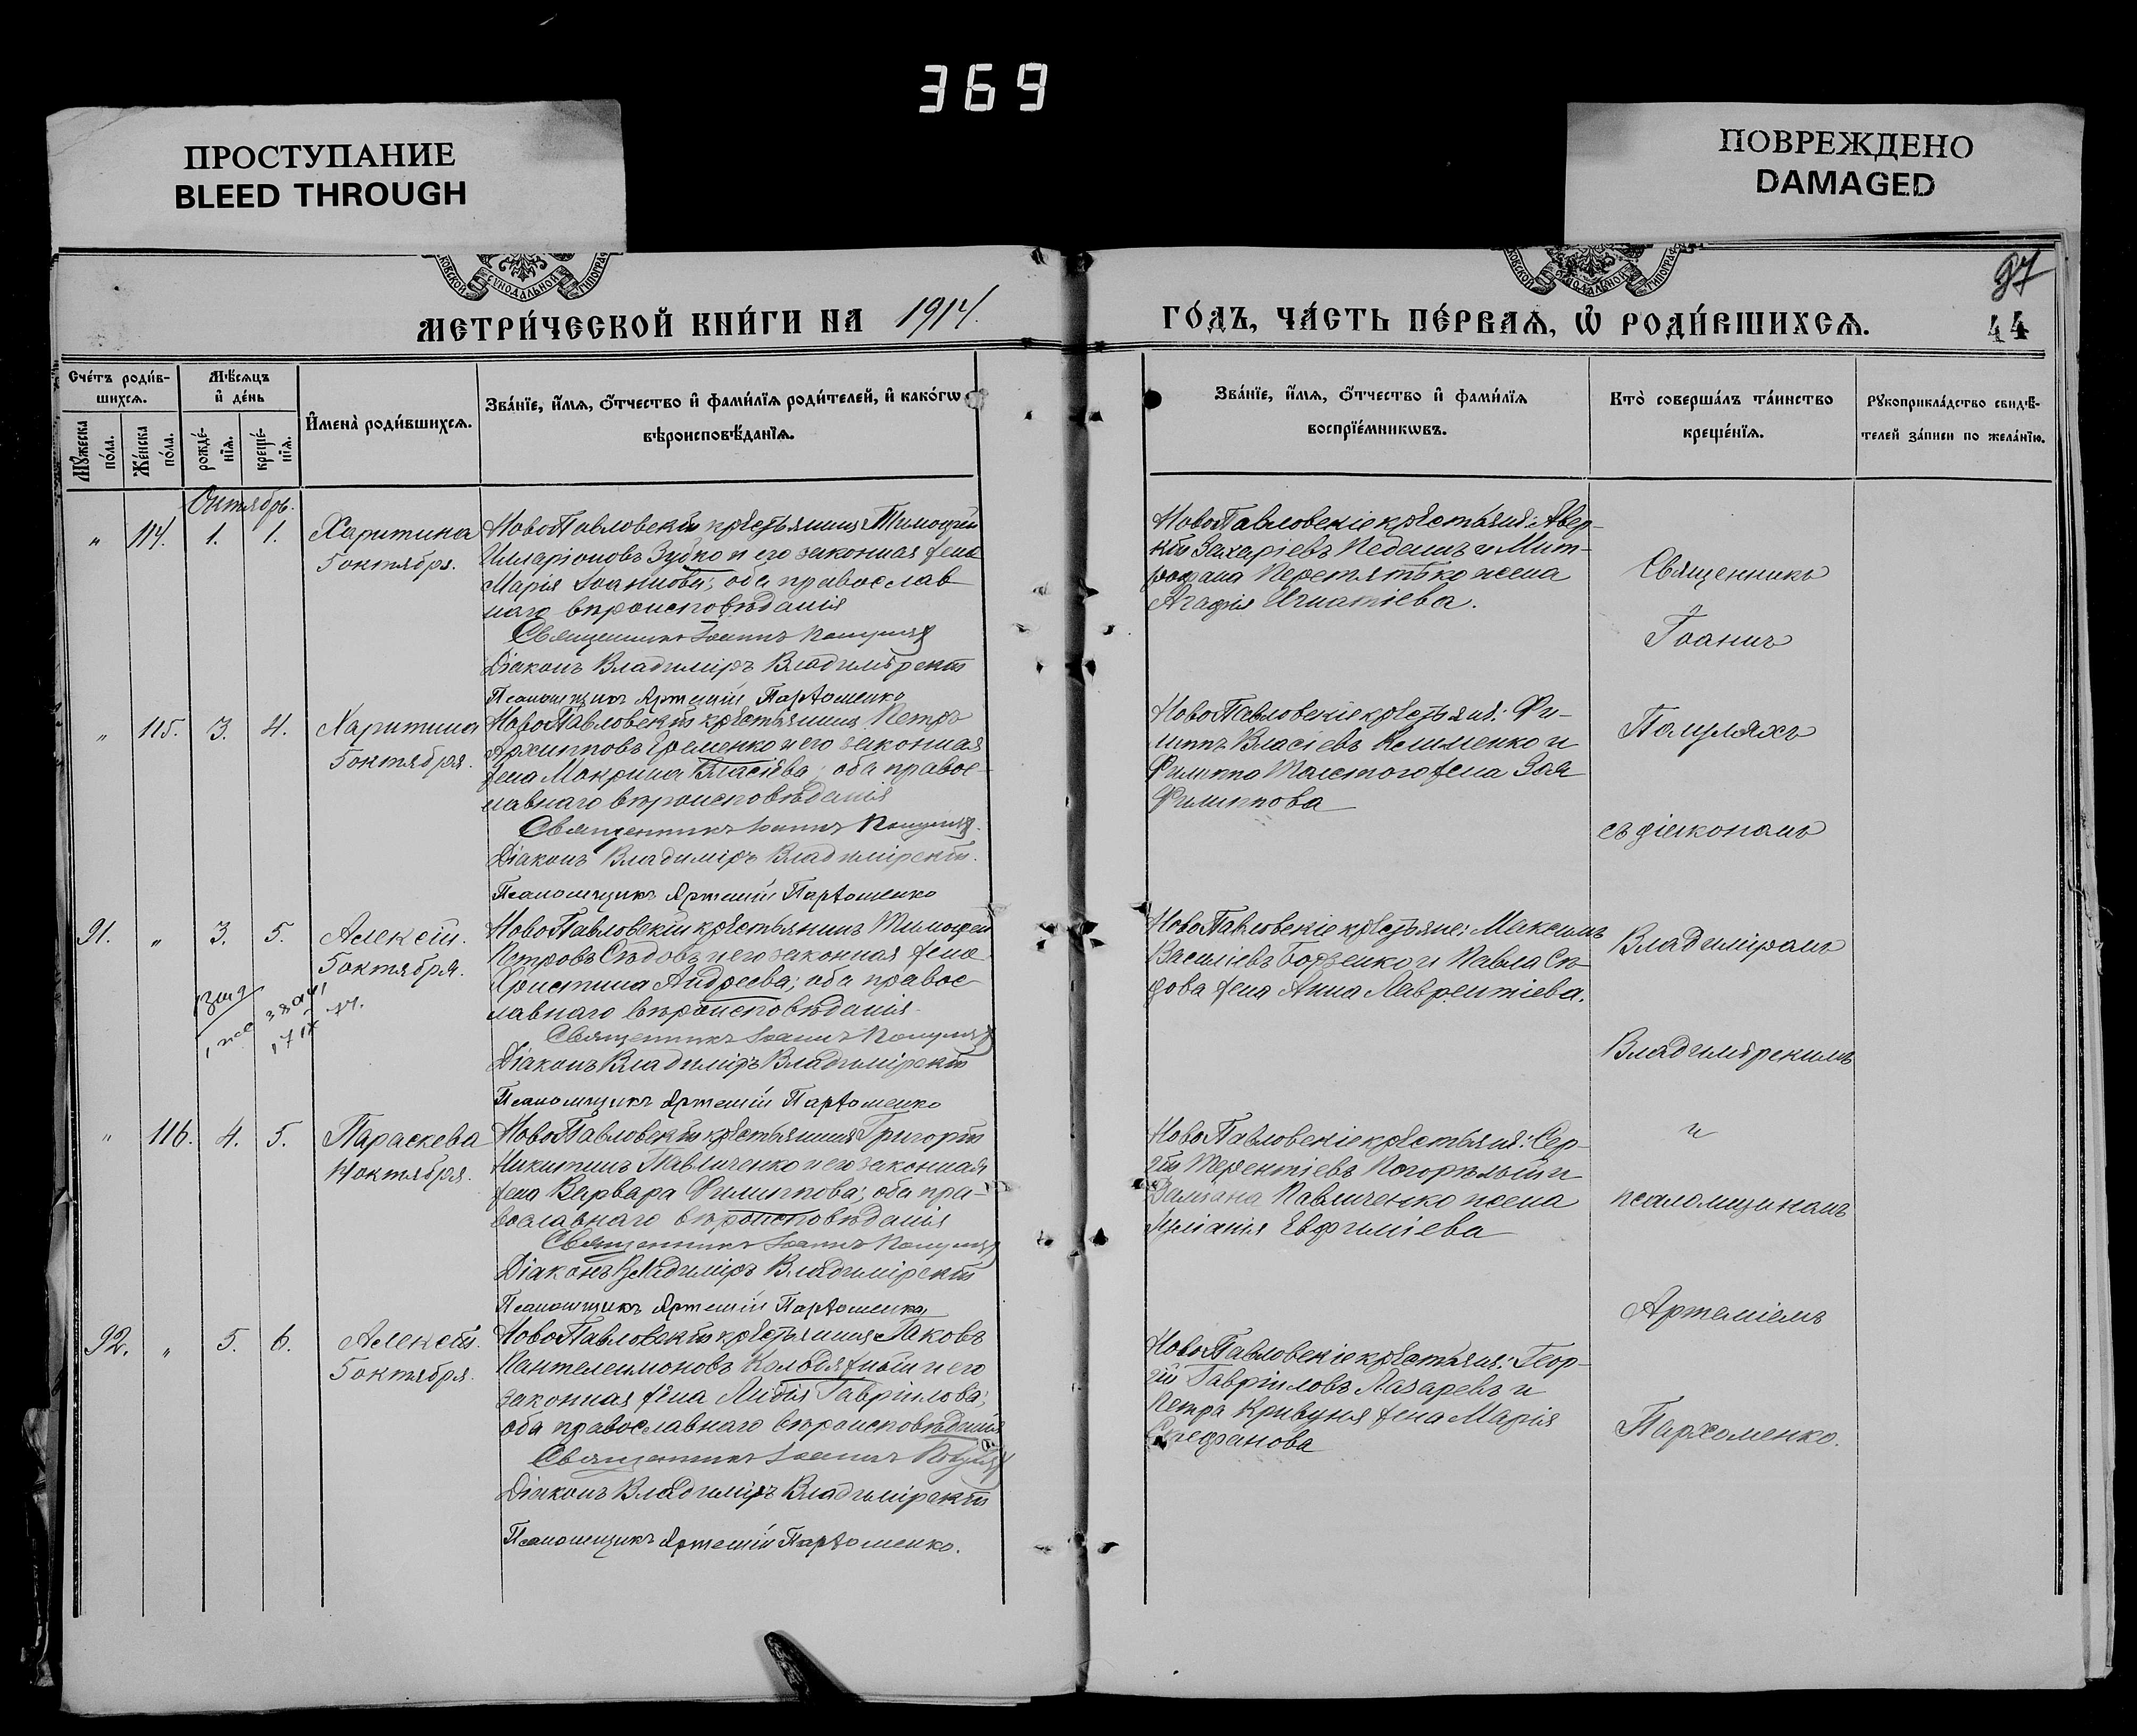 369
ПРОСТУПАНИЕ
BLEED THROUGH
ПОВРЕЖДЕНО
DAMAGED
СУНОДАЛЬНОЙ
СУНОДАЛЬНОЙ
97
44
МЕТРИ́ЧЕСКОЙ КНИ́ГИ НА 1914.
ГО́ДЪ, ЧА́СТЬ ПЕ́РВАѦ, Ѡ҆ РОДИ́ВШИХСѦ.
Сче́тъ роди́в-
шихсѧ.
Мꙋ́жеска
по́ла.
Же́нска
по́ла.
Мѣ́сѧцъ
и҆ де́нь
рожде́-
нїѧ.
креще́-
нїѧ.
И҆мена̀ роди́вшихсѧ.
Зва́нїе, и҆́мѧ, ѻ҆́тчество и҆ фами́лїѧ роди́телей, и҆ како́гѡ
вѣроисповѣ́данїѧ.
Зва́нїе, и҆́мѧ, ѻ҆́тчество и҆ фами́лїѧ
воспрїе́мникѡвъ.
Кто̀ соверша́лъ та́инство
креще́нїѧ.
Рꙋкоприкла́дство свидѣ́-
телей за́писи по жела́нїю.
Октябрь.
„ 114. 1. 1. Харитина
5 октября.
НовоПавловскій крестьянинъ Тимофей
Илларіоновъ Зубко и его законная жена
Марія Іоаннова; оба православ
наго вѣроисповѣданія
Священникъ Іоаннъ Полулях
Діаконъ Владиміръ Владимірскій
Псаломщикъ Артемій Пархоменко
НовоПавловскіе крестьяне: Авер-
кій Захаріевъ Недашъ и Мит-
рофана Перетятько жена
Агафія Игнатіева.
„ 115. 3. 4. Харитина
5 октября.
НовоПавловскій крестьянинъ Петръ
Архипповъ Еременко и его законная
жена Макрина Власіева; оба правос-
лавнаго вѣроисповѣданія
Священникъ Іоаннъ Полулях
Діаконъ Владиміръ Владимірскій.
Псаломщикъ Артемій Пархоменко
НовоПавловскіе крестьяне: Фи-
липпъ Власіевъ Клименко и
Филиппа Толстого жена Зоя
Филиппова
91. „ 3. 5. Алексій.
5 октября.
НовоПавловскій крестьянинъ Тимофей
Петровъ Сѣдовъ и его законная жена
Христина Андреева; оба правос-
лавнаго вѣроисповѣданія.
Священникъ Іоаннъ Полулях
Діаконъ Владиміръ Владимірскій
Псаломщикъ Артемій Пархоменко
НовоПавловскіе крестьяне: Максимъ
Василіевъ Бодзенко и Павла Сѣ-
дова жена Анна Лаврентіева.
„ 116. 4. 5. Параскева
14 октября.
НовоПавловскій крестьянинъ Григорій
Никитинъ Павличенко и его законная
жена Варвара Филиппова; оба пра-
вославнаго вѣроисповѣданія
Священникъ Іоаннъ Полулях
Діаконъ Владиміръ Владимірскій
Псаломщикъ Артемій Пархоменко
НовоПавловскіе крестьяне: Сер-
гій Терентіевъ Погорѣлый и
Павличенко жена
Евфиміева
92. „ 5. 6. Алексій.
5 октября.
НовоПавловскій крестьянинъ Іаковъ
Пантелеимоновъ и его
законная жена Лидія Гавріилова;
оба православнаго вѣроисповѣданія
Священникъ Іоаннъ Полулях
Діаконъ Владиміръ Владимірскій
Псаломщикъ Артемій Пархоменко.
НовоПавловскіе крестьяне: Геор-
гій Гавріиловъ Лазаревъ и
Петра Кривуня жена Марія
Стефанова
Священникъ
Іоаннъ
Полуляхъ
съ діакономъ
Владиміромъ
Владимірскимъ
и
псаломщикомъ
Артеміемъ
Пархоменко.